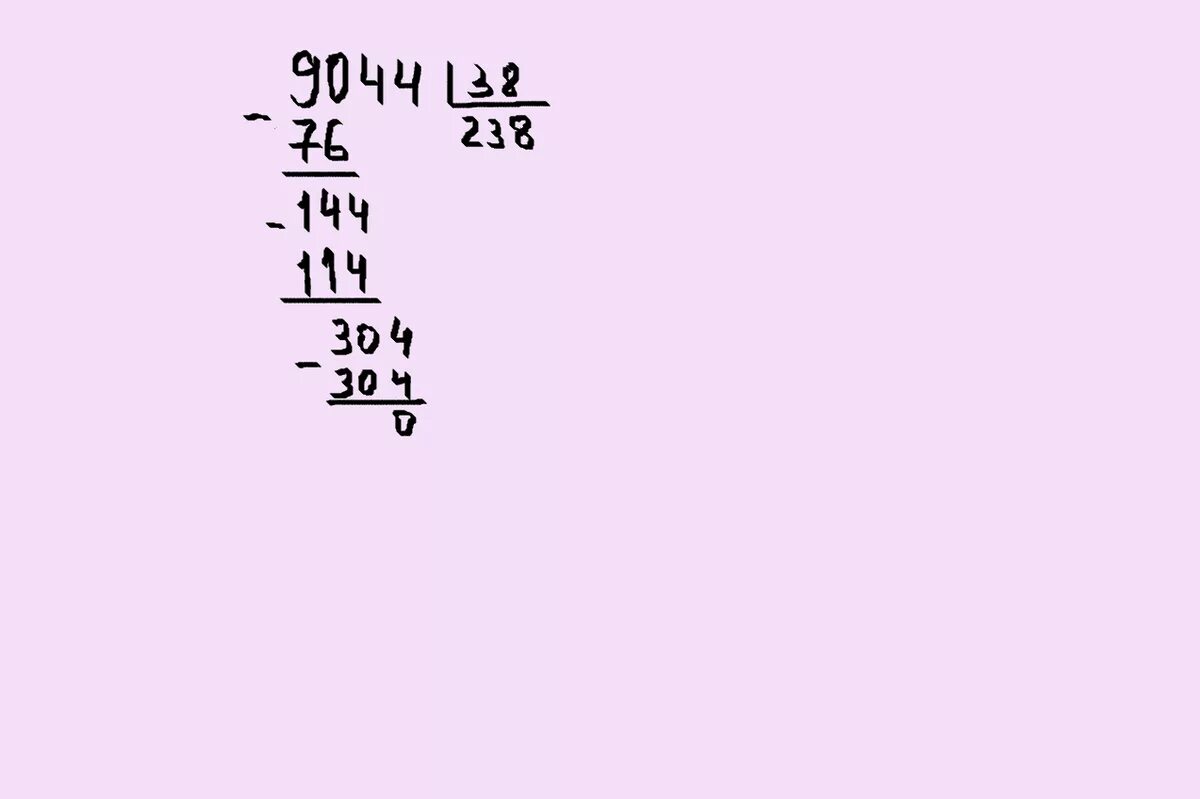 9044 38
- 76 238
- 144
114
304
- 304
0